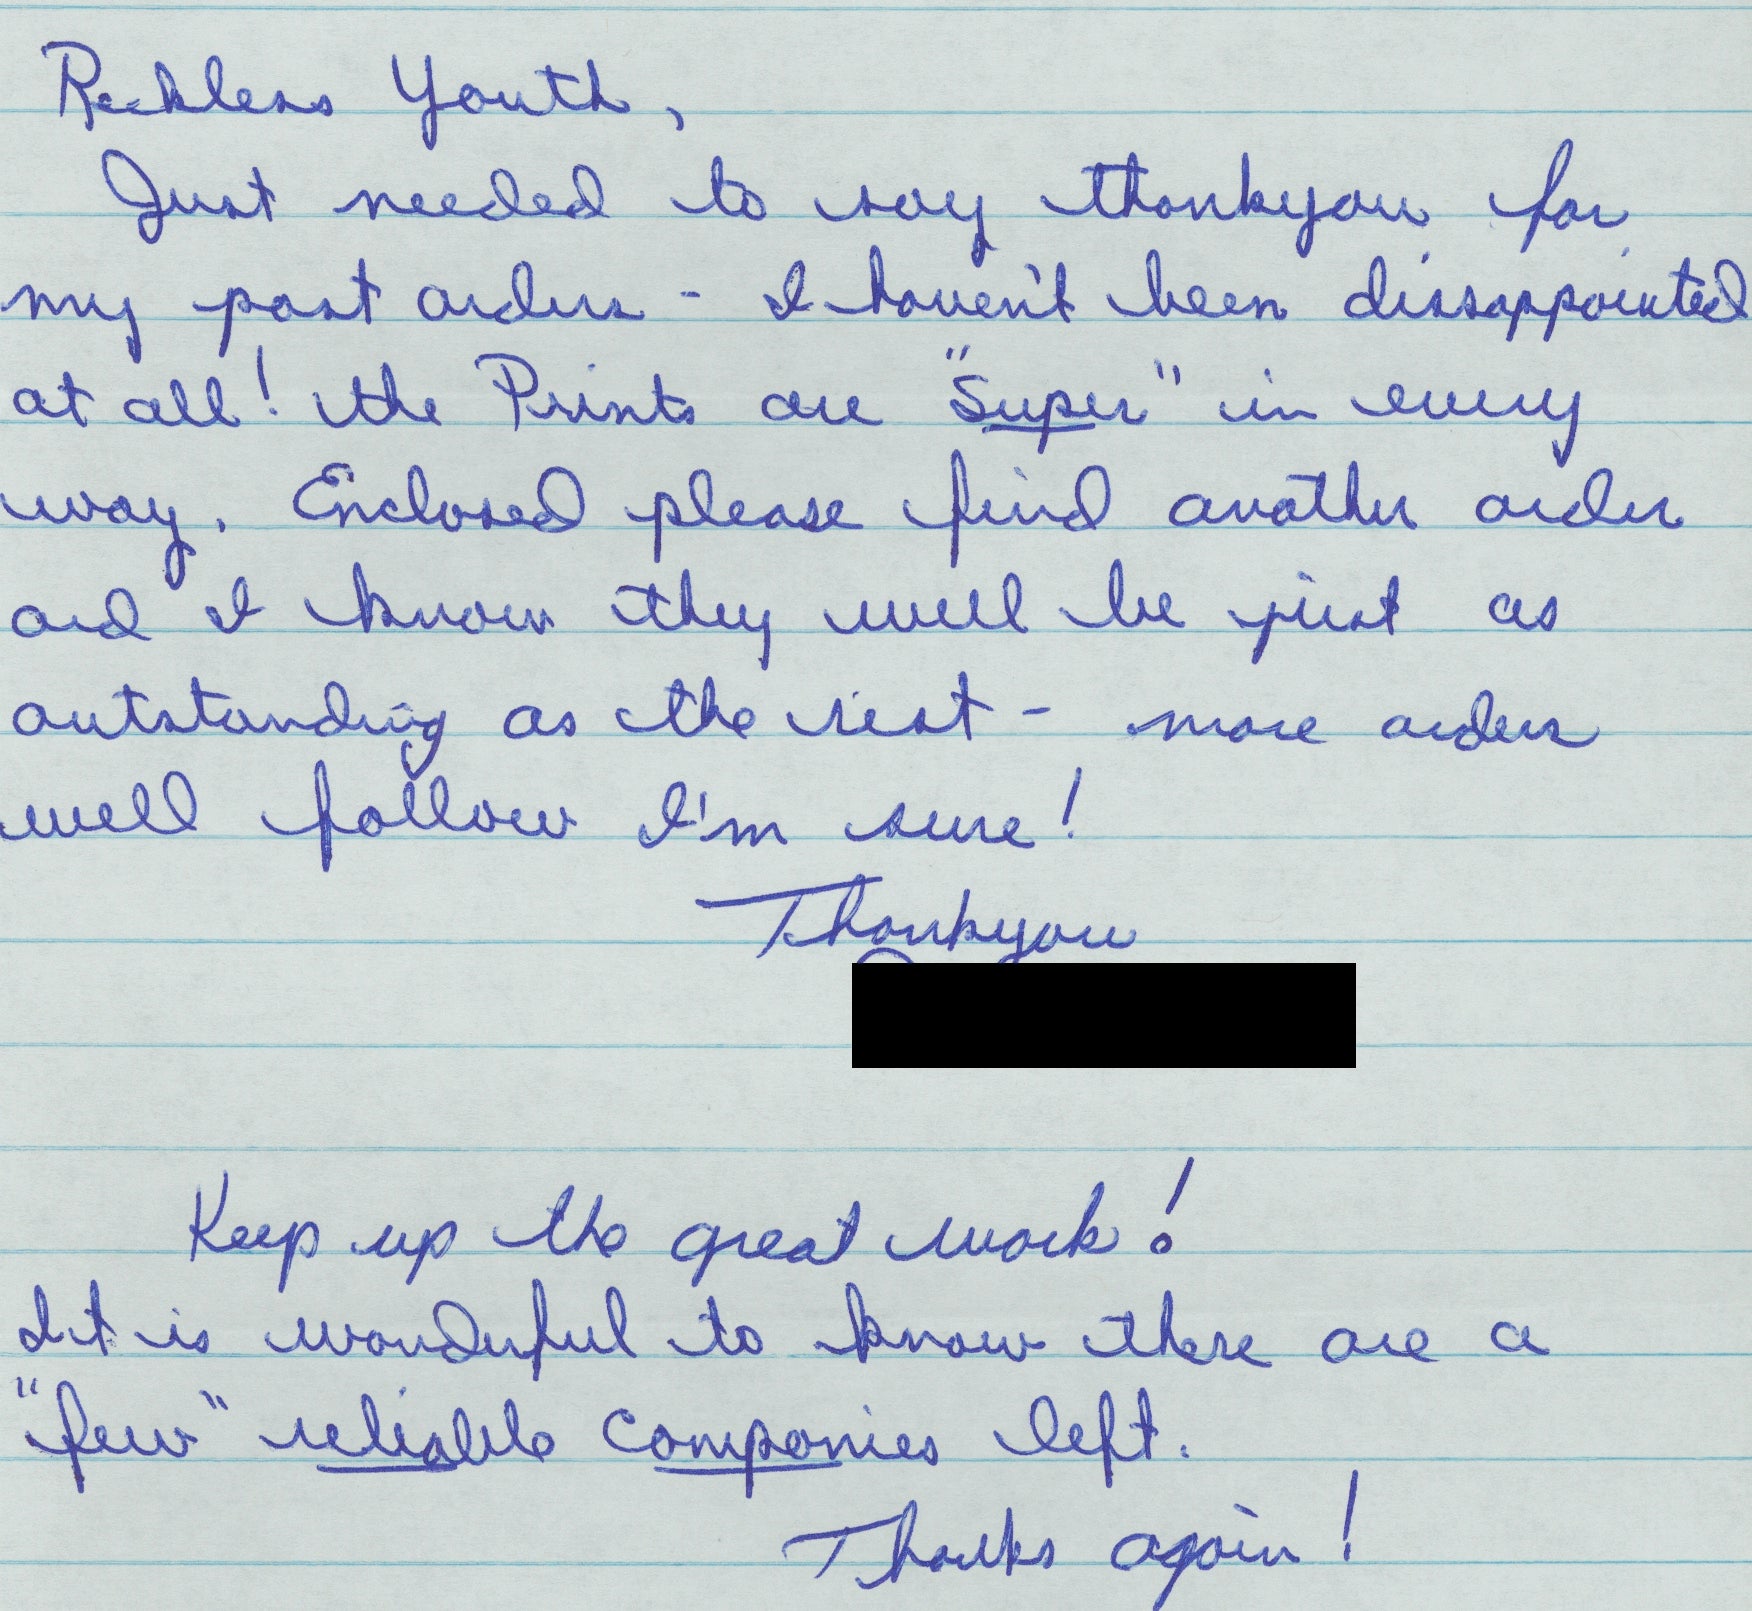 Reckless Youth,
Just needed to say thankyou for
my past orders - I haven't been dissappointed
at all! the Prints are "Super" in every
way. Enclosed please find another order
and I know they will be just as
outstanding as the rest - more orders
will follow I'm sure!
Thankyou
Keep up the great work!
It is wonderful to know there are a
"few" reliable companies left.
Thanks again!